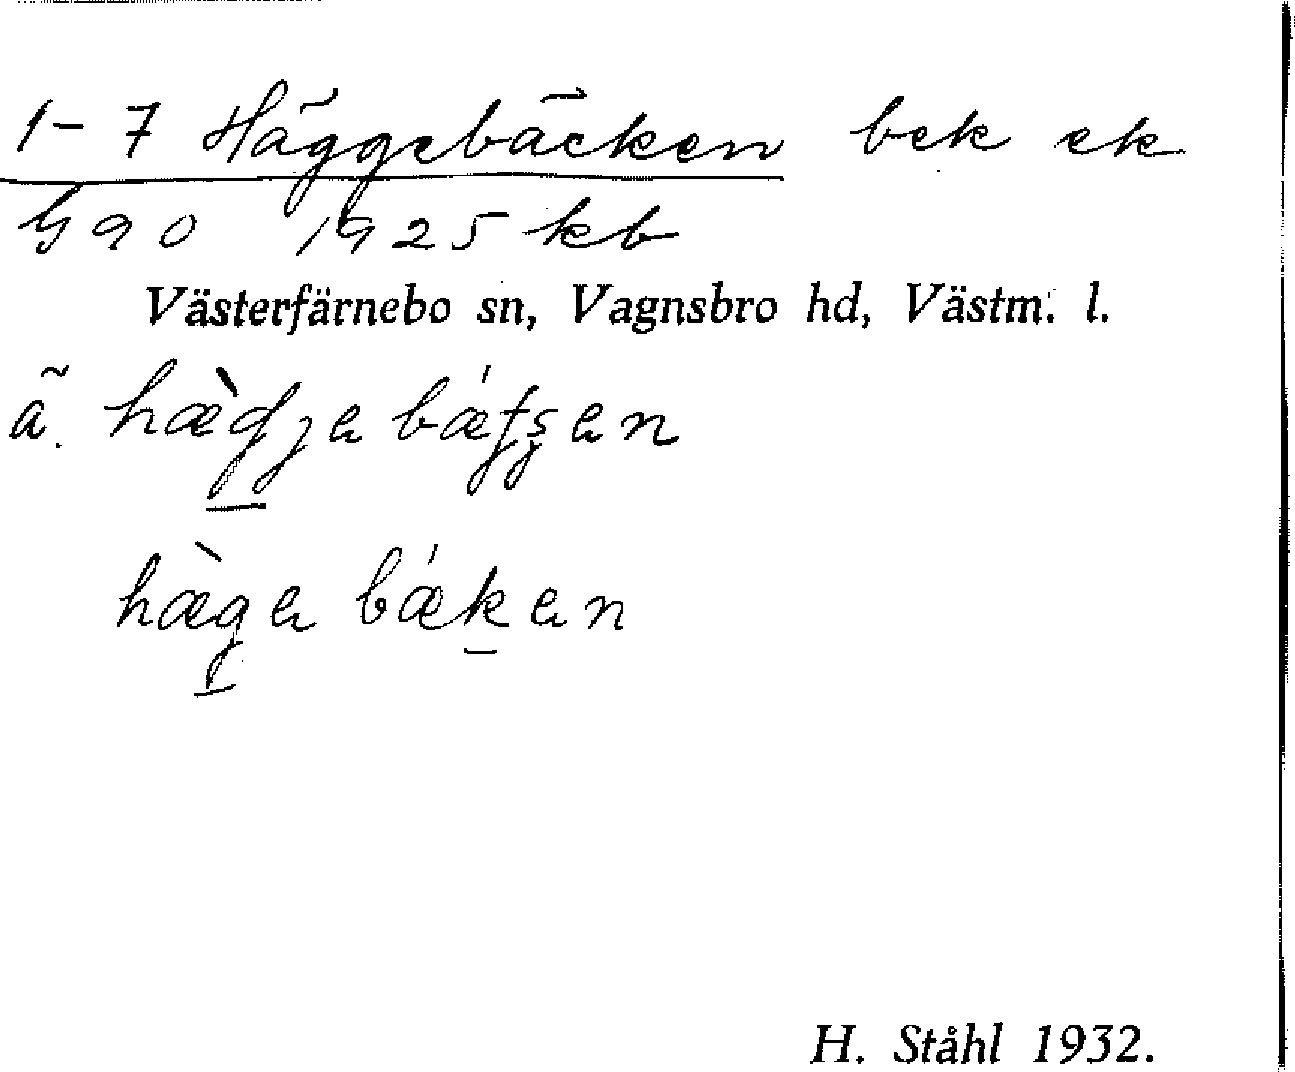 1-7 Häggebäcken bek ek
G 90 1925 kb
Västerfärnebo sn, Vagnsbro hd, Västm. l.
ä.
H. Ståhl 1932.